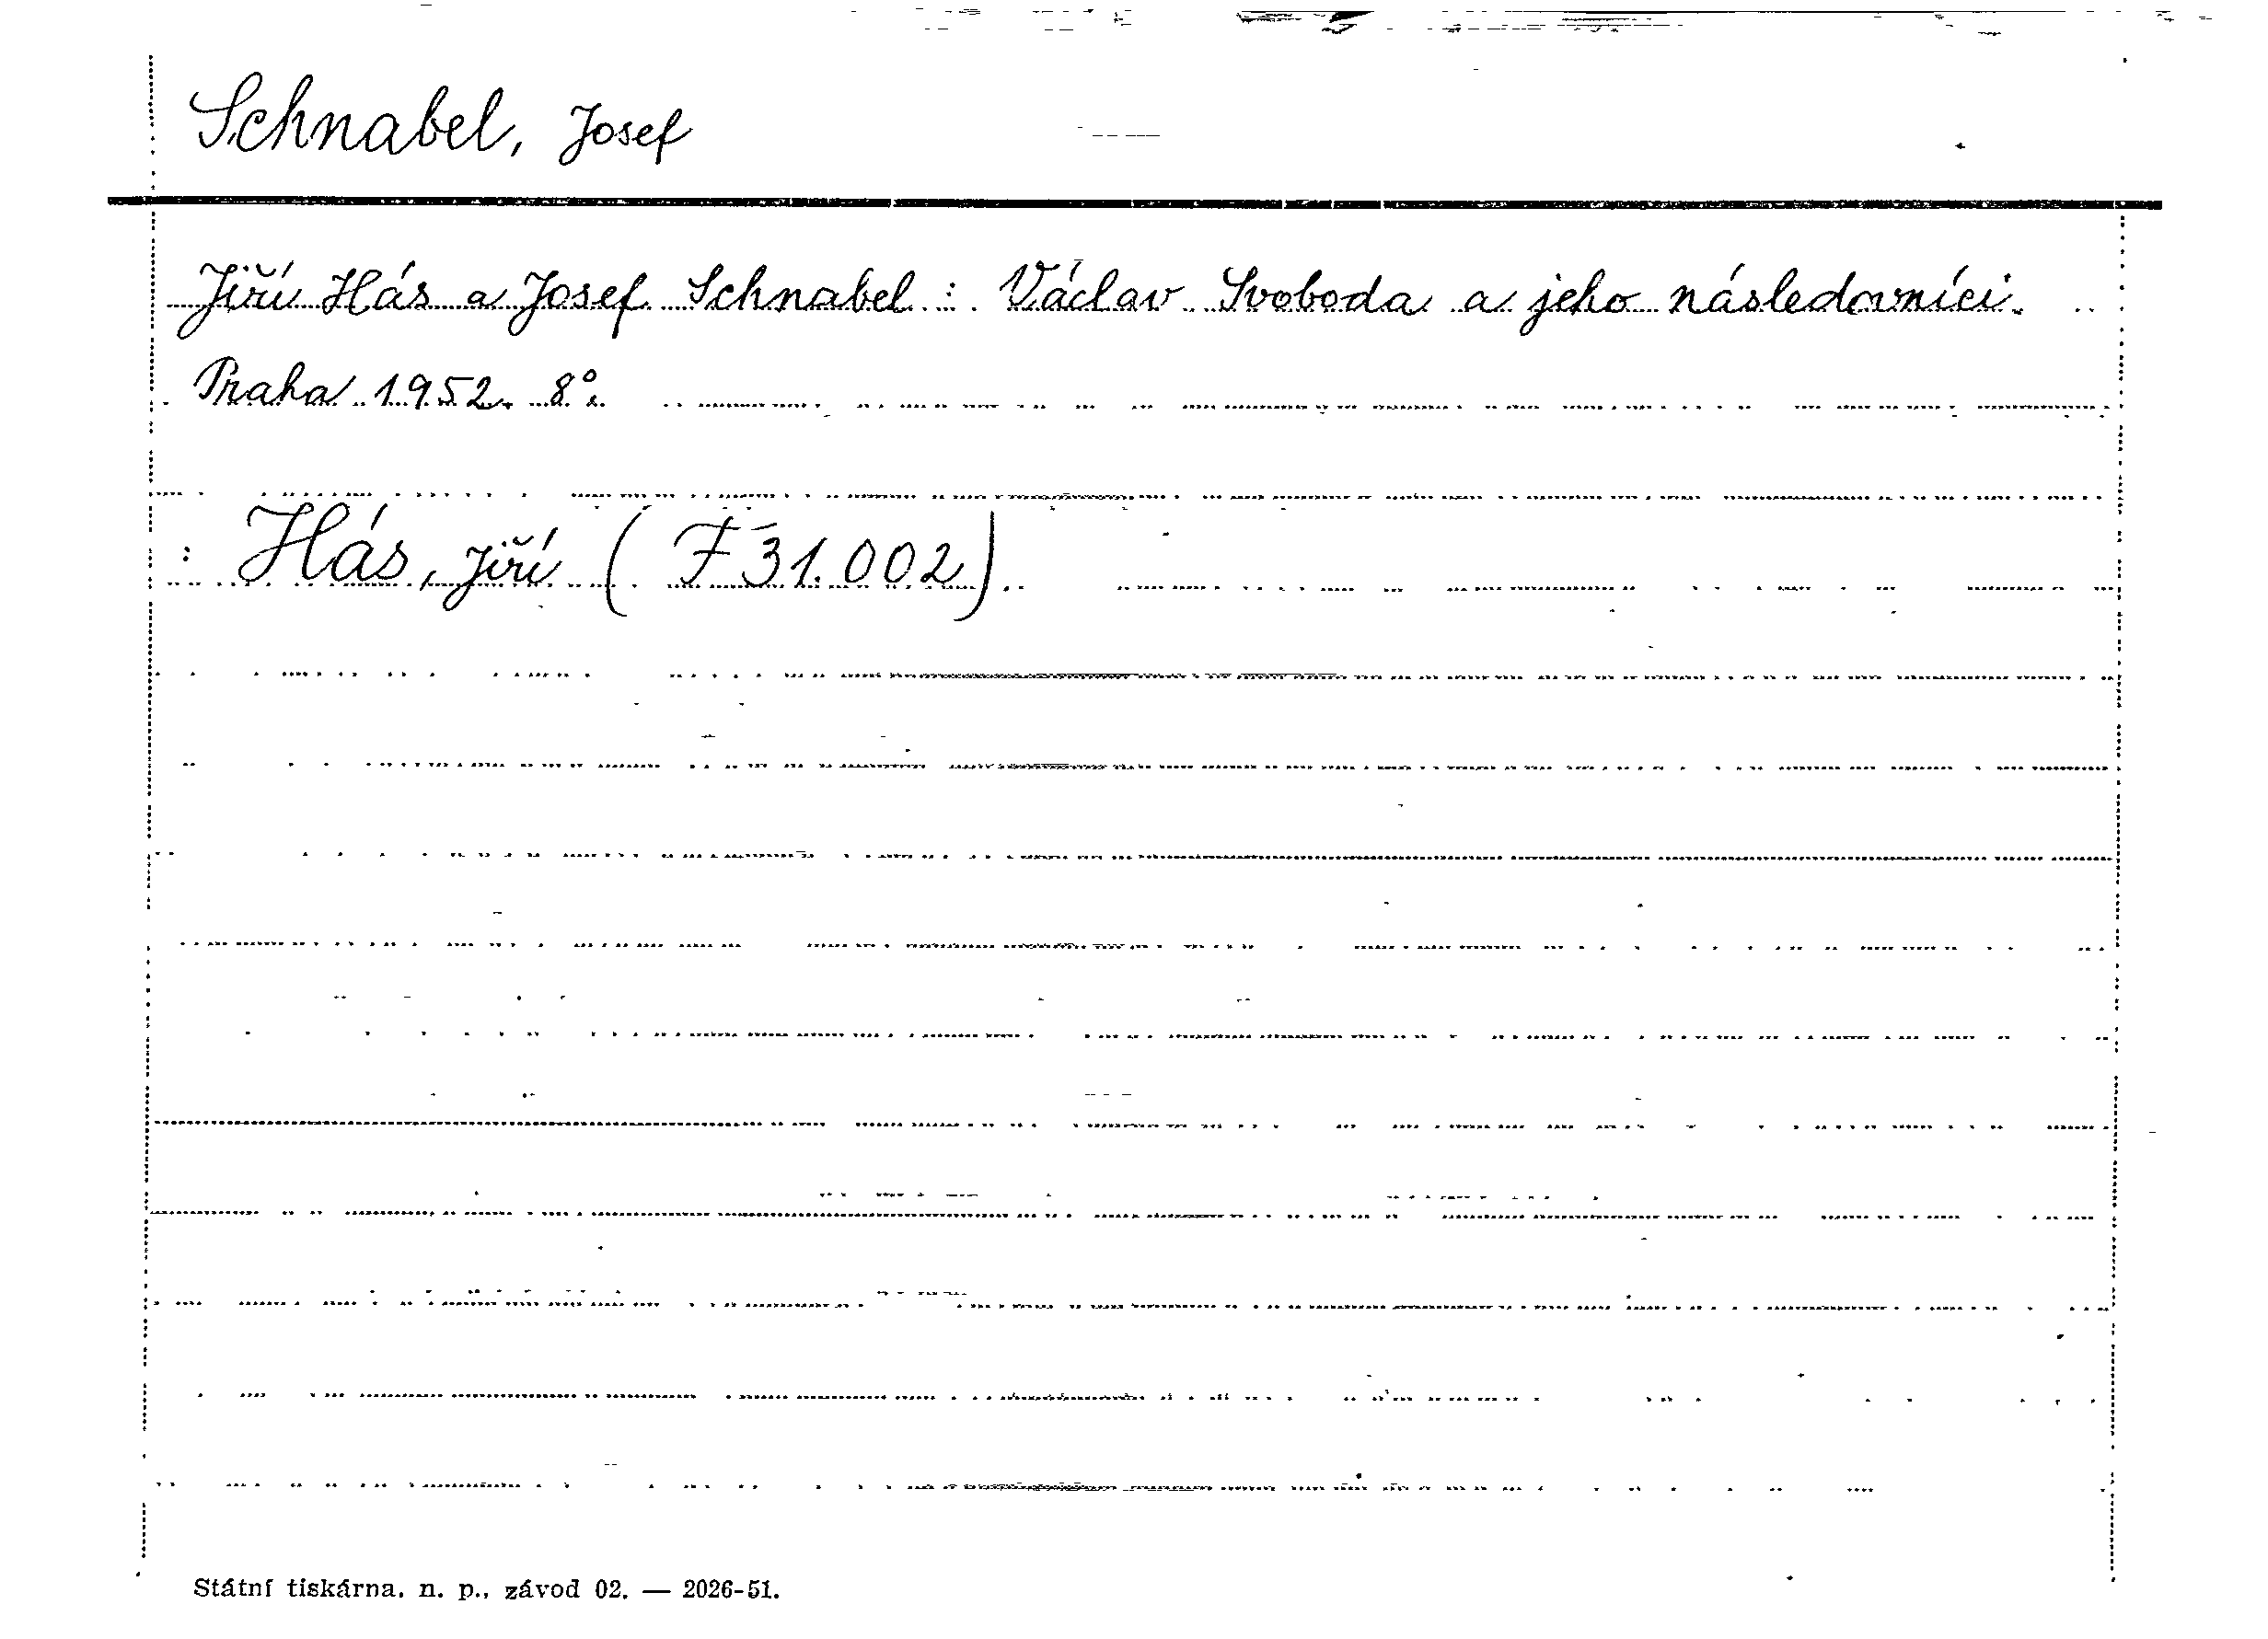 Schnabel, Josef
Jiří Hás a Josef Schnabel : Václav Svoboda a jeho následovníci.
Praha 1952. 8°.
: Hás, Jiří ( F 31.002).
Státní tiskárna, n. p., závod 02. — 2026-51.